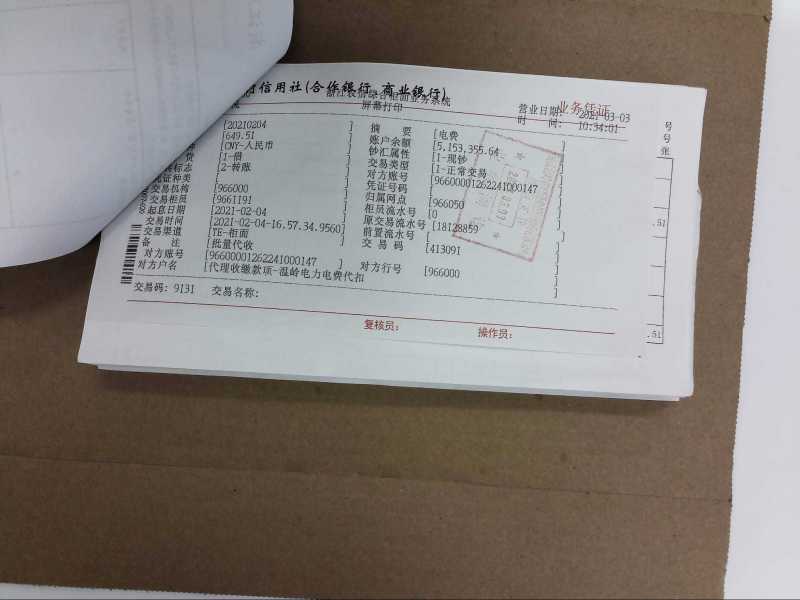 信用社(合作银行 商业银行)
浙江农信综合柜面业务系统
业务凭证
屏幕打印
营业日期: 2021-03-03
时 间: 10:34:01
号
号
张
[20210204 ] 摘 要 [电费 ]
[649.51 ] 账户余额 [5,153,355.64 ]
[CNY-人民币 ] 钞汇属性 [1-现钞 ]
[1-借 ] 交易类型 [1-正常交易 ]
标志 [2-转账 ] 对方账号 [96600001262241000147 ]
凭证种类 凭证号码
交易机构 [966000 ] 归属网点 [966050 ]
交易柜员 [9661191 ] 柜员流水号 [0 ]
起息日期 [2021-02-04 ] 原交易流水号 [18128859 ]
交易时间 [2021-02-04-16.57.34.9560] 前置流水号 [ ]
交易渠道 [TE-柜面 ] 交 易 码 [413091 ]
备 注 [批量代收 ]
对方账号 [96600001262241000147 ] 对方行号 [966000 ]
对方户名 [代理收缴款项-温岭电力电费代扣 ]
交易码: 9131 交易名称:
复核员: 操作员:
.51
.51